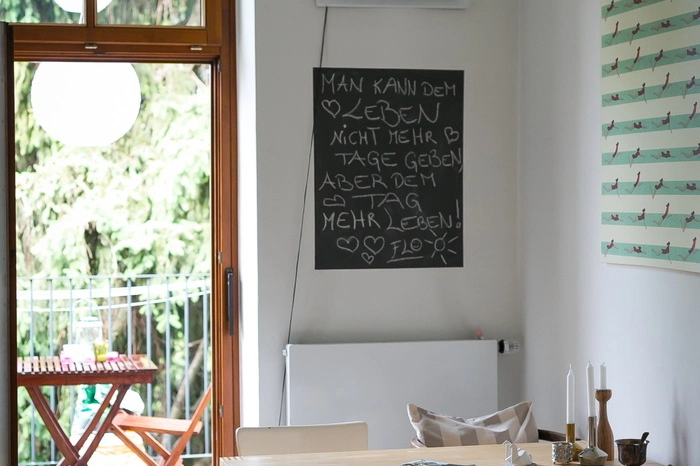 MAN KANN DEM
LEBEN
NICHT MEHR
TAGE GEBEN,
ABER DEM
TAG
MEHR LEBEN!
FLO